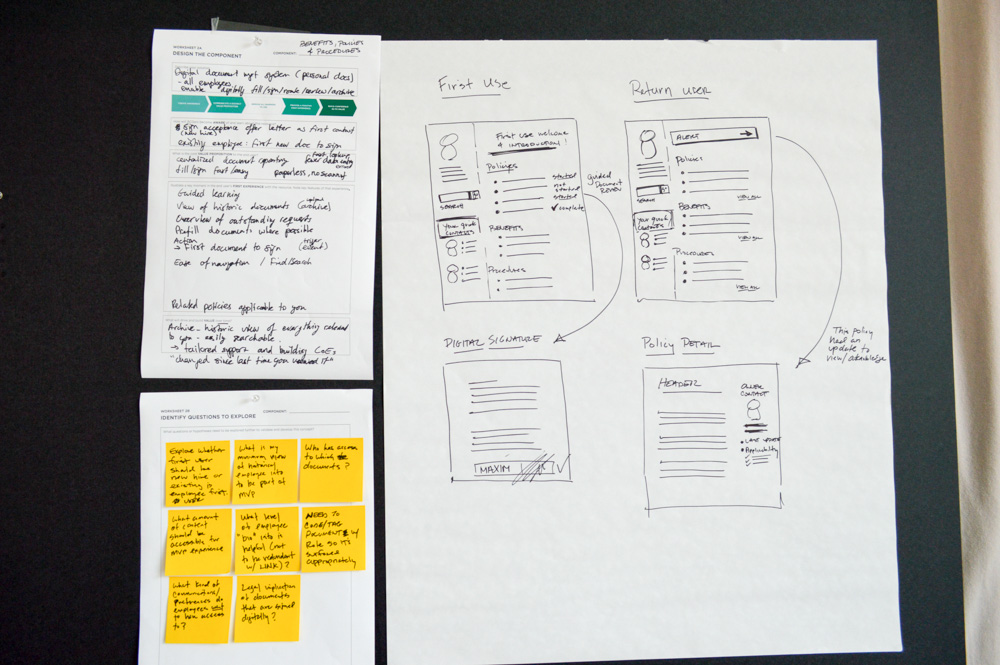 WORKSHEET 2A
DESIGN THE COMPONENT
COMPONENT:
BENEFITS, POLICIES
& PROCEDURES
Digital document mgt system (personal docs)
- all employees
enable digitally fill/sign/route/review/archive
sign acceptance offer letter as first contact
(new hire)
existing employee: first new doc to sign
centralized document
lower data entry
error
fill/sign fast/easy paperless, no scanned
Guided learning
View of historic documents (archive)
upload
Overview of outstanding requests
Prefill documents where possible
Action
→ First document to sign (event)
Ease of navigation / Find/Search
Related policies applicable to you
Archive - historic view of everything
to you - easily searchable.
→ tailored support and building CoE,
"changed since last time you
WORKSHEET 2B
COMPONENT:
IDENTIFY QUESTIONS TO EXPLORE
Explore whether
first user
should be
new hire or
existing
employee first.
What is my
minimum view of
historical
employee info
to be part of
MVP
Who has access
to which
documents?
What amount
of content
should be
accessible for
MVP experience
What level
of employee
"bio" info is
helpful (not
to be redundant
w/ LINK)?
NEEDS TO
CODE/TAG
DOCUMENTS w/
Role so its
surfaced
appropriately
What kind of
preferences do
employees want
to have access
to?
Legal implication
of documents
that are signed
digitally?
First Use
First use welcome
& INTRODUCTION!
Policies
started
not
started
started
✓ complete
SEARCH
Your quick
contacts
BENEFITS
Procedures
guided
Document
REVIEW
Return user
ALERT →
Policies
VIEW ALL
SEARCH
Your quick
contacts
BENEFITS
VIEW ALL
Procedures
VIEW ALL
This policy
has an
update to
view/acknowledge
DIGITAL SIGNATURE
MAXIM
Policy DETAIL
HEADER
OWNER
CONTACT
• LAST UPDATE
• Applicability